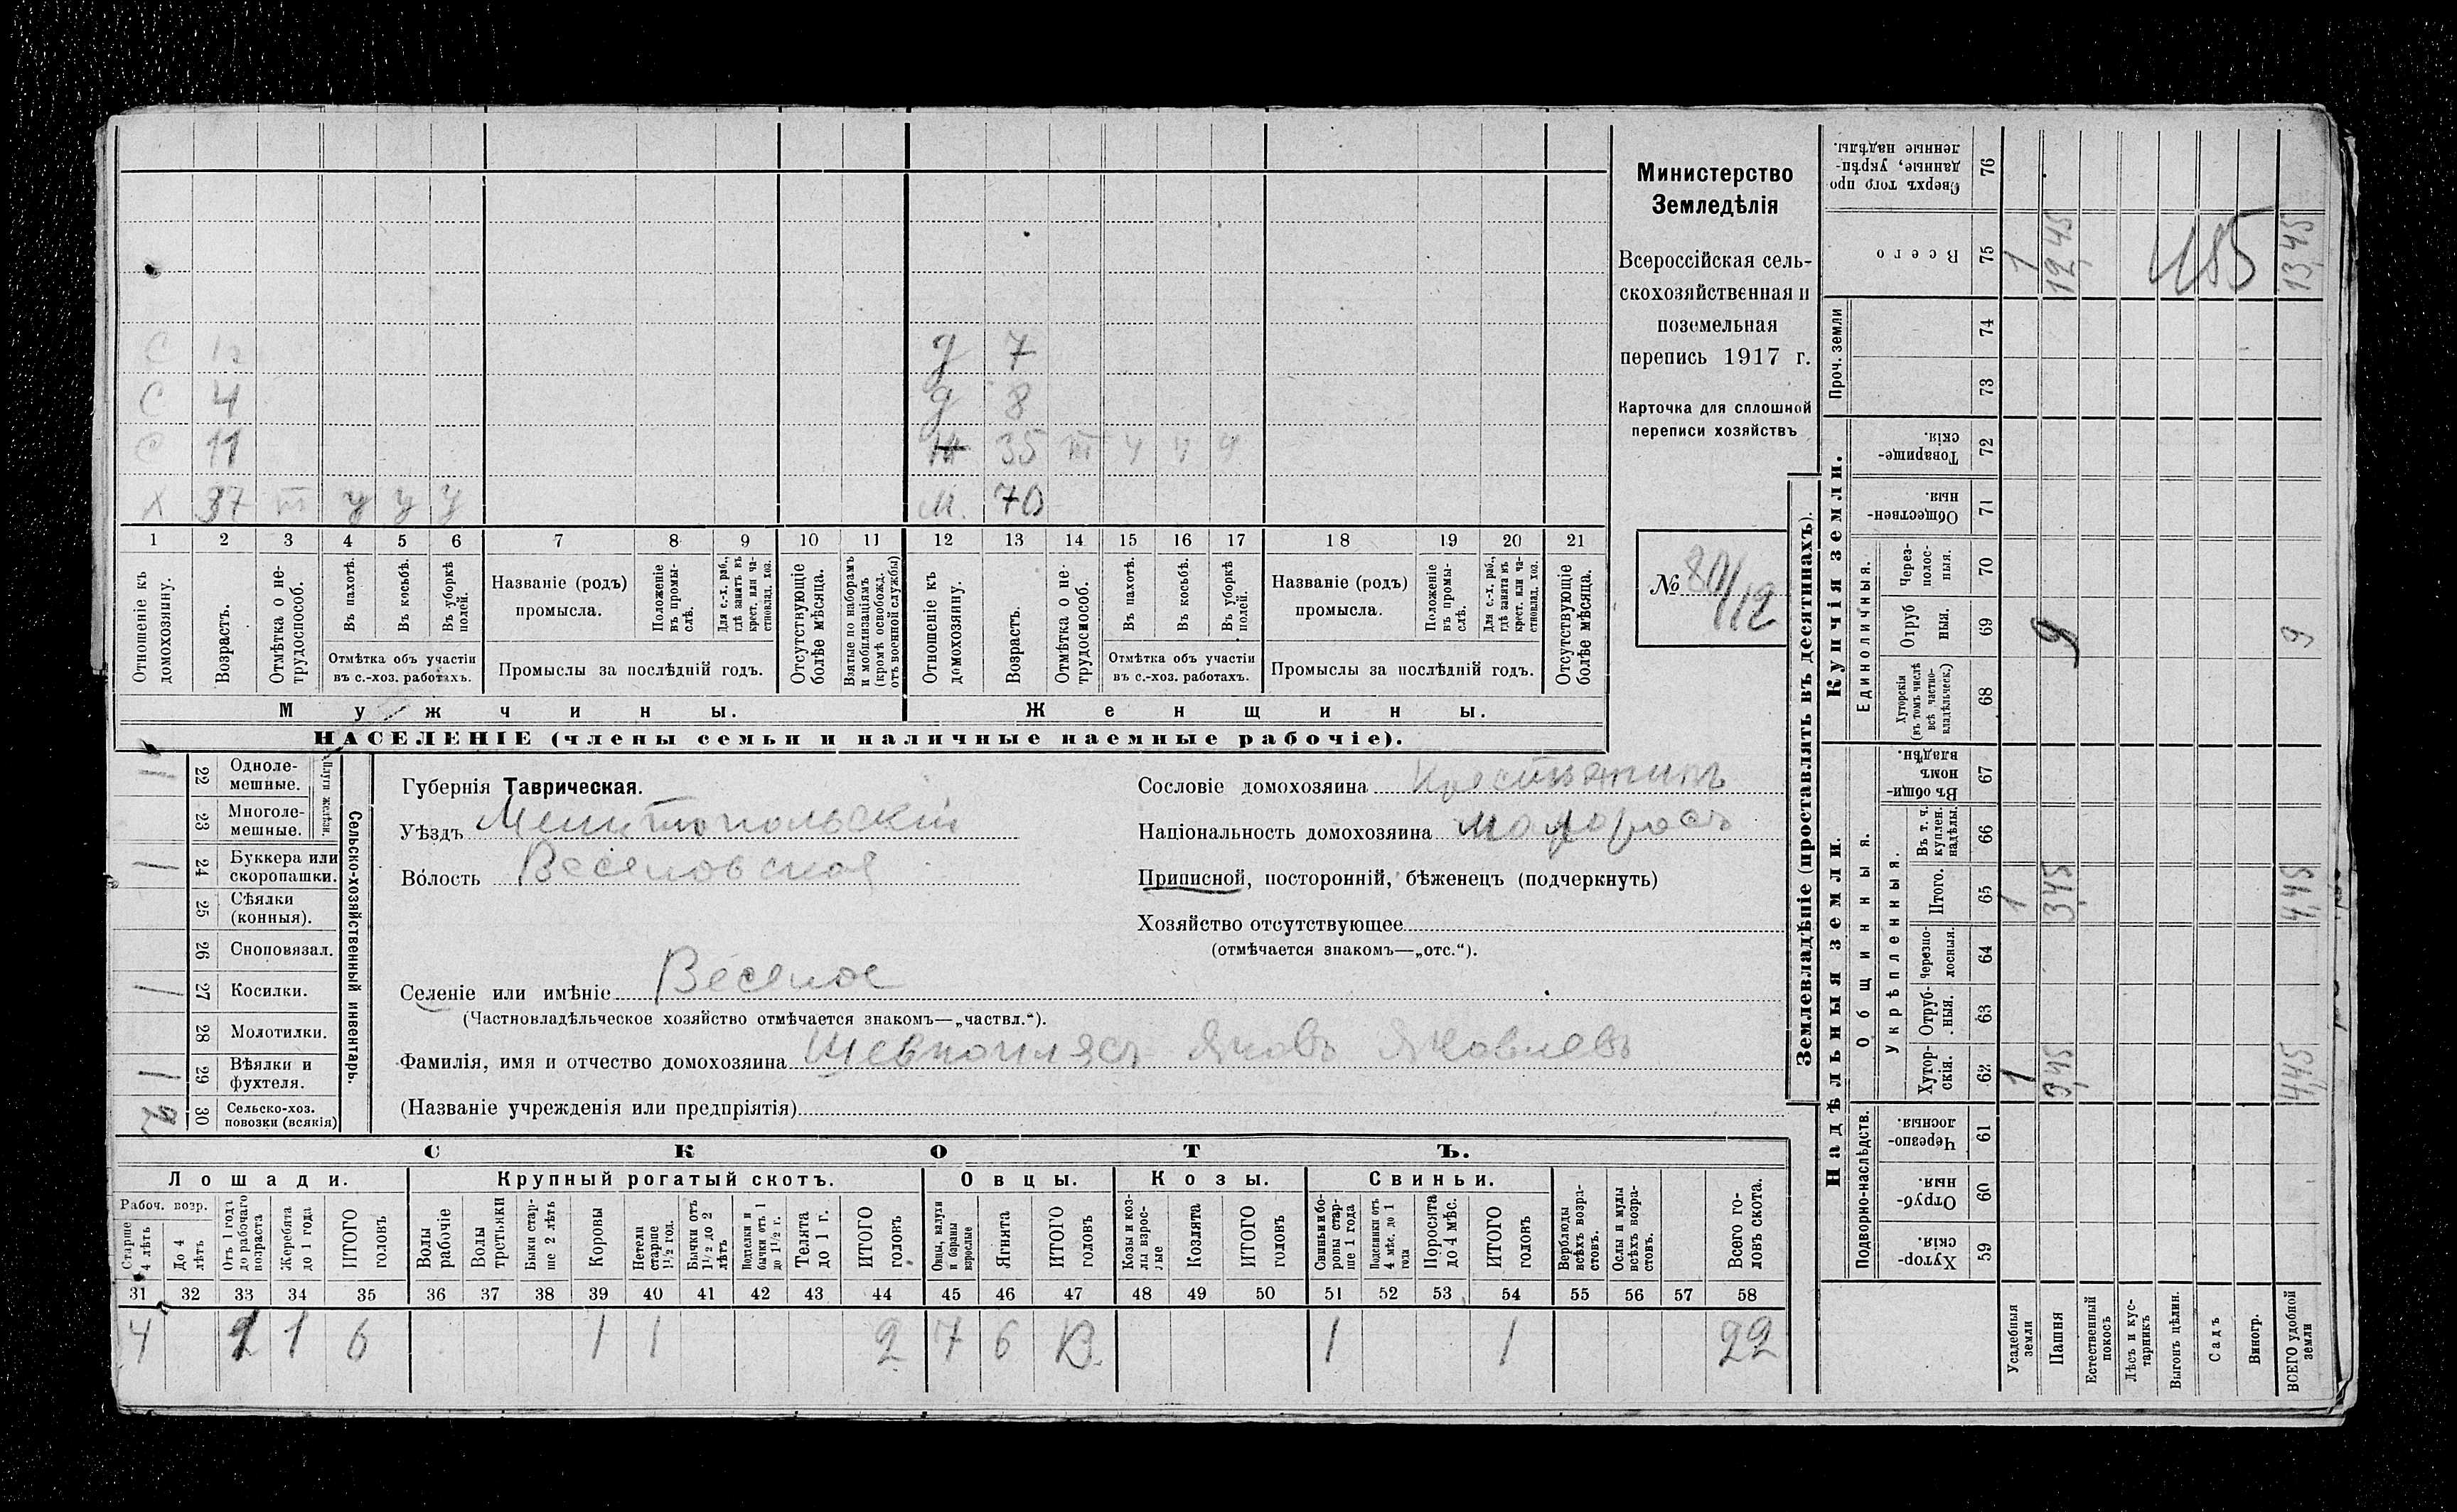 С 1/2 д 7
С 4 д 8
С 11 Ж 35 т ч ч ч
Х 37 т у у у М. 70
1 2 3 4 5 6 7 8 9 10 11 12 13 14 15 16 17 18 19 20 21
Отношеніе къ домохозяину.
Возрастъ.
Отмѣтка о нетрудоспособ.
Въ пахотѣ.
Въ косьбѣ.
Въ уборкѣ полей.
Отмѣтка объ участіи
въ с.-хоз. работахъ.
Названіе (родъ)
промысла.
Положеніе въ промыслѣ.
Для с.-х. раб., гдѣ занятъ въ крест. или частновлад. хоз.
Промыслы за послѣдній годъ.
Отсутствующіе болѣе мѣсяца.
Взятые по наборамъ и мобилизаціямъ (кромѣ освобожд. отъ военной службы)
Отношеніе къ домохозяину.
Возрастъ.
Отмѣтка о нетрудоспособ.
Въ пахотѣ.
Въ косьбѣ.
Въ уборкѣ полей.
Отмѣтка объ участіи
въ с.-хоз. работахъ.
Названіе (родъ)
промысла.
Положеніе въ промыслѣ.
Для с.-х. раб., гдѣ занятъ въ крест. или частновлад. хоз.
Промыслы за послѣдній годъ.
Отсутствующіе болѣе мѣсяца.
Мужчины.
Женщины.
НАСЕЛЕНІЕ (члены семьи и наличные наемные рабочіе).
Министерство
Земледѣлія
Всероссійская сель-
скохозяйственная и
поземельная
перепись 1917 г.
Карточка для сплошной
переписи хозяйствъ
№ 80/12
Сельско-хозяйственный инвентарь.
Плуги желѣзн.
1 22 Одноле-
мешные.
23 Многоле-
мешные.
1 24 Буккера или
скоропашки.
25 Сѣялки
(конныя).
26 Сноповязал.
1 27 Косилки.
28 Молотилки.
1 29 Вѣялки и
фухтеля.
30 Сельско-хоз.
повозки (всякія)
Губернія Таврическая.
Уѣздъ Мелитопольскій
Во́лость Веселовская
Селеніе или имѣніе Веселое
(Частновладѣльческое хозяйство отмѣчается знакомъ—„частвл.“).
Фамилія, имя и отчество домохозяина Шевкоплясъ Яковъ Яковлевъ
(Названіе учрежденія или предпріятія)
Сословіе домохозяина Крестьянинъ
Національность домохозяина малоросъ
Приписной, посторонній, бѣженецъ (подчеркнуть)
Хозяйство отсутствующее
(отмѣчается знакомъ—„отс.“).
СКОТЪ.
Лошади. Крупный рогатый скотъ. Овцы. Козы. Свиньи.
Рабоч. возр.
Старше 4 лѣтъ
До 4 лѣтъ
Отъ 1 года до рабочаго возраста
Жеребята до 1 года
ИТОГО головъ
Волы рабочіе
Волы третьяки
Быки старше 2 лѣтъ
Коровы
Нетели старше 1½ год.
Бычки отъ 1½ до 2 лѣтъ
Подтелки и бычки отъ 1 до 1½ г.
Телята до 1 г.
ИТОГО головъ
Овцы, валухи и бараны взрослые
Ягнята
ИТОГО головъ
Козы и козлы взрослые
Козлята
ИТОГО головъ
Свиньи и боровы старше 1 года
Подсвинки отъ 4 мѣс. до 1 года
Поросята до 4 мѣс.
ИТОГО головъ
Верблюды всѣхъ возрастовъ.
Ослы и мулы всѣхъ возрастовъ.
Всего головъ скота.
31 32 33 34 35 36 37 38 39 40 41 42 43 44 45 46 47 48 49 50 51 52 53 54 55 56 57 58
4 1 1 6 1 1 2 7 6 13. 1 1 22
Землевладѣніе (проставлять въ десятинахъ).
Надѣльныя земли.
Купчія земли.
Проч. земли
Подворно-наслѣдств.
Общинныя.
Укрѣпленныя.
Единоличныя.
Сверхъ того проданные, укрѣпленные надѣлы. 76
Всего 75 1 12,45 13,45
485
74
73
Товарищескія. 72
Общественныя. 71
Черезполосныя. 70
Отрубныя. 69 9 9
Хуторскія (въ томъ числѣ всѣ частновладѣльческ.) 68
Въ общинномъ владѣн. 67
Въ т. ч. куплен. надѣлы. 66
Итого. 65 1 3,45 4,45
Черезполосныя. 64
Отрубныя. 63
Хуторскія. 62 1 3,45 4,45
Черезполосныя. 61
Отрубныя. 60
Хуторскія. 59
Усадебныя земли
Пашня
Естественный покосъ
Лѣсъ и кустарникъ
Выгонъ цѣлин.
Садъ
Виногр.
ВСЕГО удобной земли